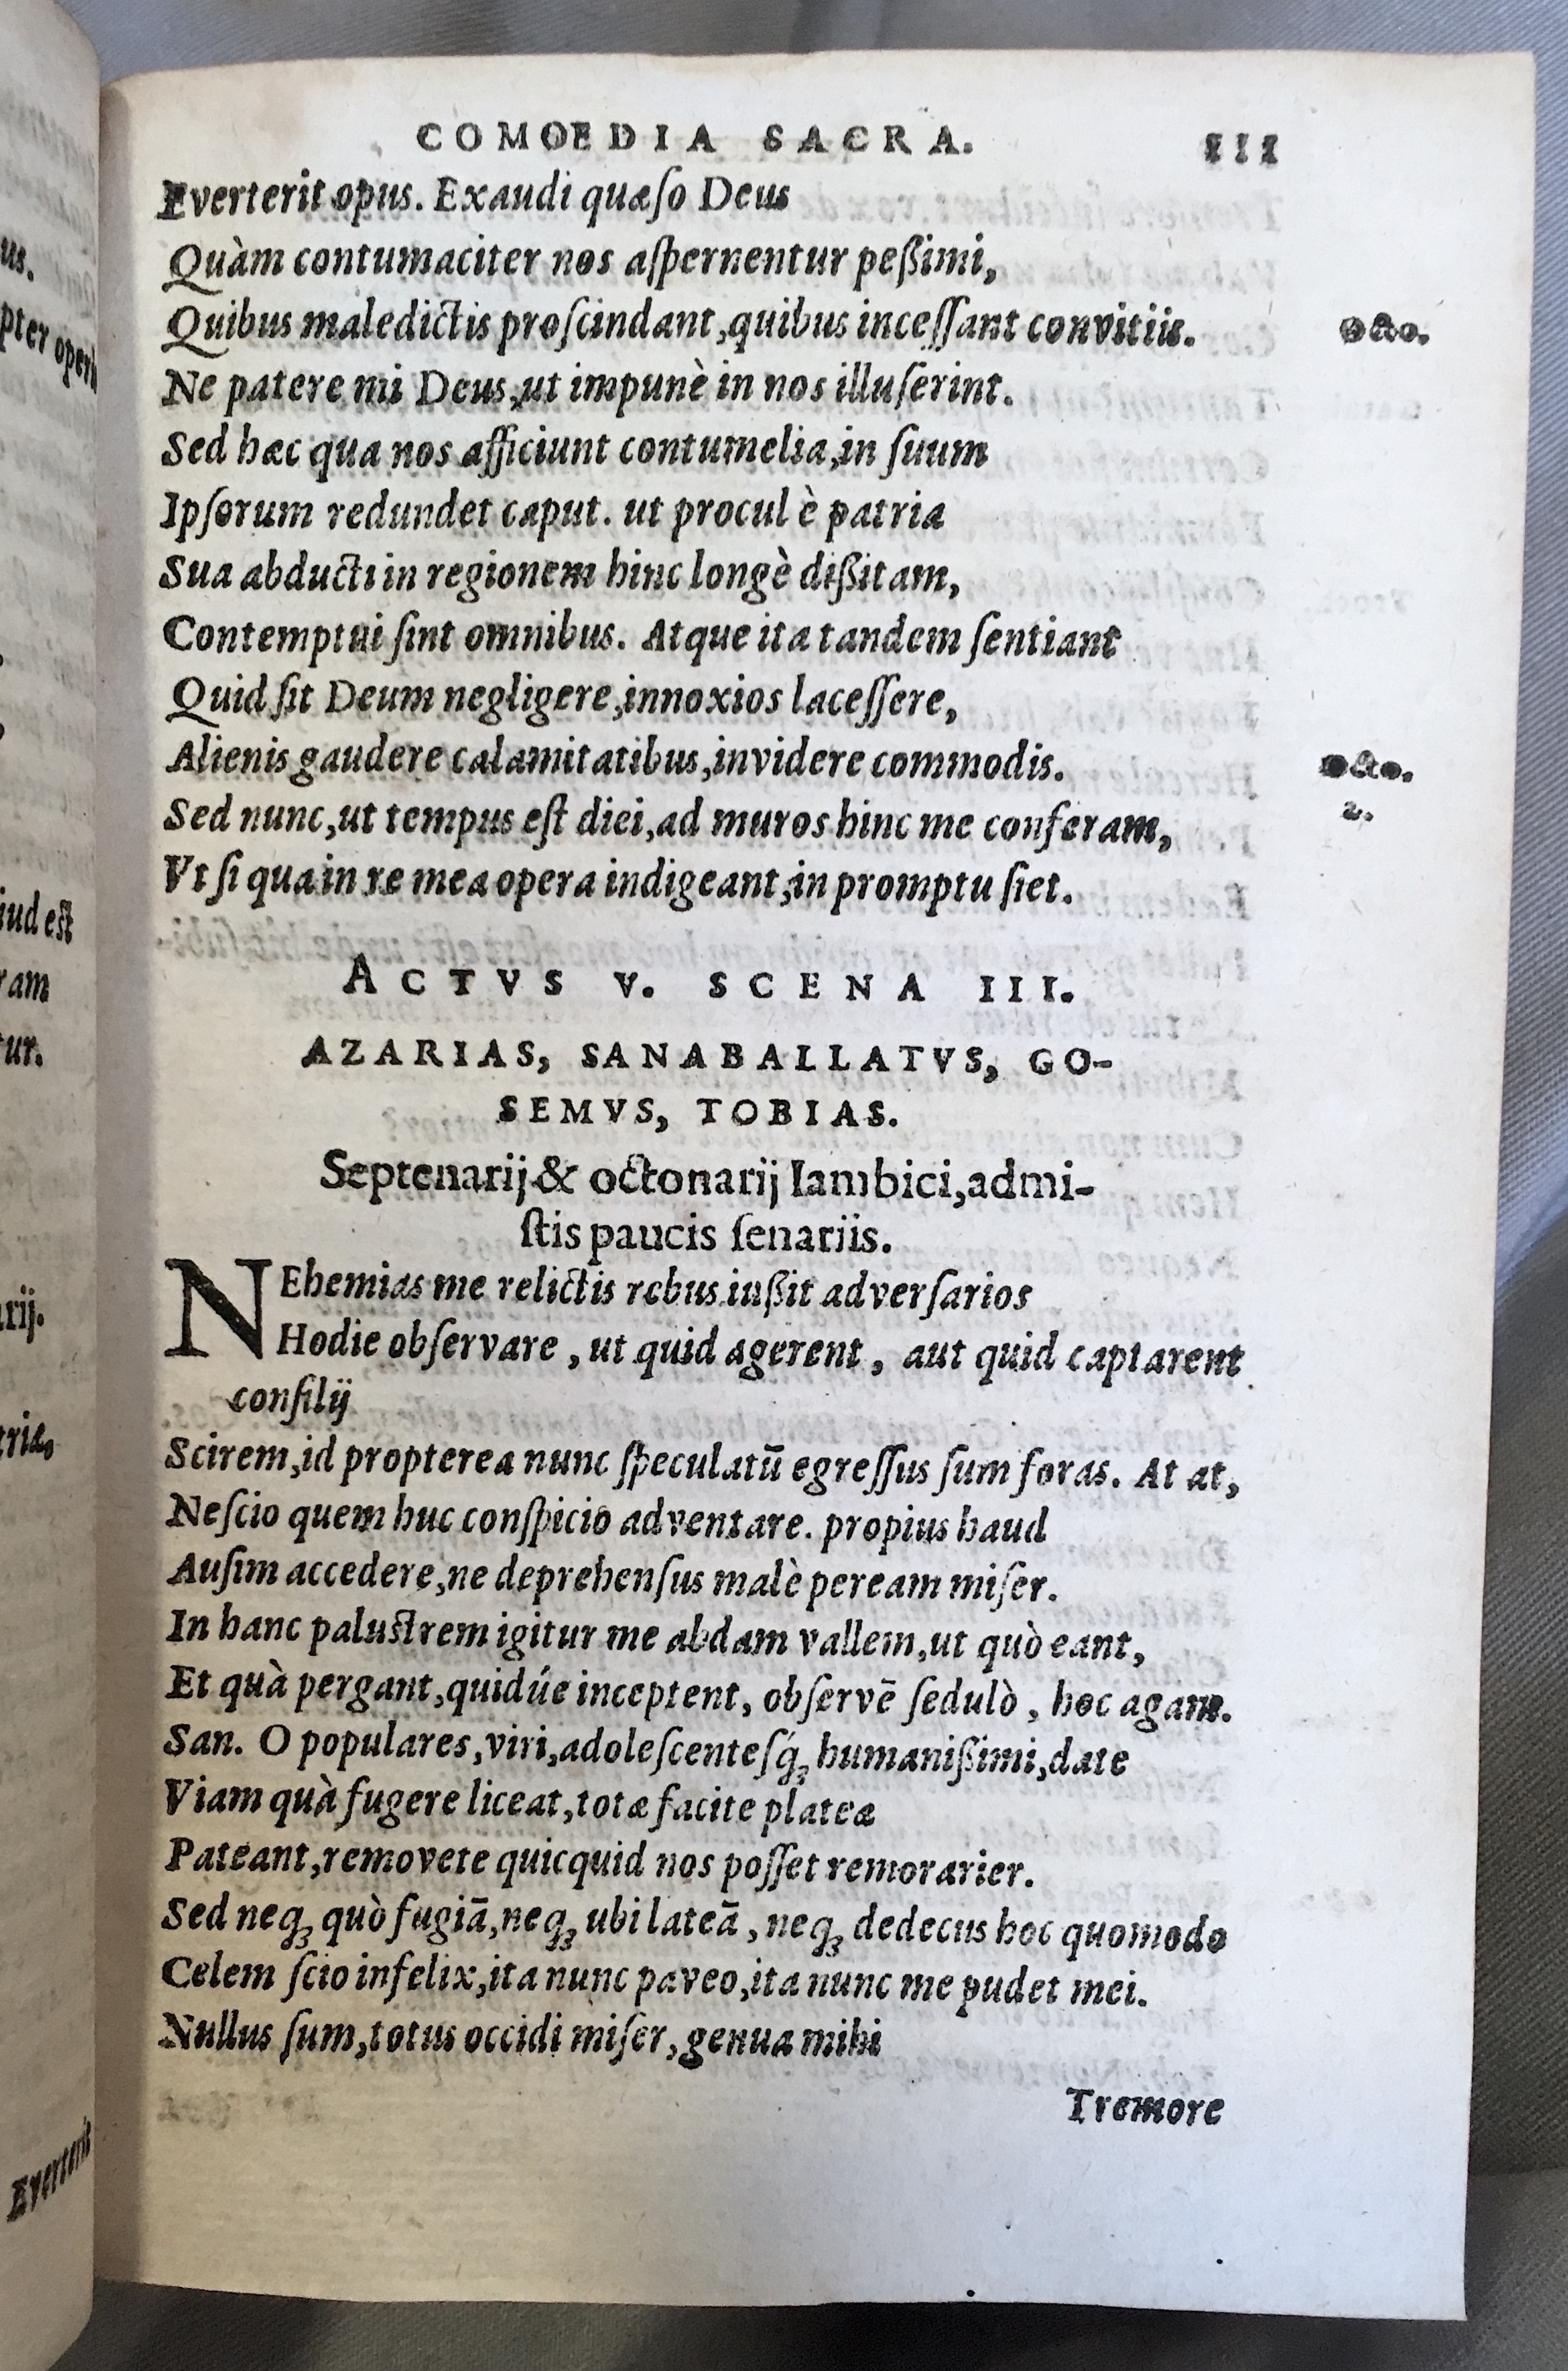 COMOEDIA SACRA. 111
Everterit opus. Exaudi quæſo Deus
Quàm contumaciter nos aſpernentur peßimi,
Quibus maledictis proſcindant, quibus inceſſant convitiis. octo.
Ne patere mi Deus, ut impunè in nos illuſerint.
Sed hæc qua nos afficiunt contumelia, in ſuum
Ipſorum redundet caput. ut procul è patria
Sua abducti in regionem hinc longè dißitam,
Contemptui ſint omnibus. Atque ita tandem ſentiant
Quid ſit Deum negligere, innoxios laceſſere,
Alienis gaudere calamitatibus, invidere commodis. octo.
Sed nunc, ut tempus eſt diei, ad muros hinc me conferam, 2.
Vt ſi qua in re mea opera indigeant, in promptu ſiet.
ACTVS V. SCENA III.
AZARIAS, SANABALLATVS, GO-
SEMVS, TOBIAS.
Septenarij & octonarij Iambici, admi-
ſtis paucis ſenariis.
NEhemias me relictis rebus iußit adverſarios
Hodie obſervare, ut quid agerent, aut quid captarent
conſilij
Scirem, id propterea nunc ſpeculatū egreſſus ſum foras. At at,
Neſcio quem huc conſpicio adventare. propius haud
Auſim accedere, ne deprehenſus malè peream miſer.
In hanc paluſtrem igitur me abdam vallem, ut quò eant,
Et quà pergant, quidúe inceptent, obſervē ſedulò, hoc agam.
San. O populares, viri, adoleſcenteſq́; humanißimi, date
Viam quà fugere liceat, totæ facite plateæ
Pateant, removete quicquid nos poſſet remorarier.
Sed neq; quò fugiā, neq; ubi lateā, neq; dedecus hoc quomodo
Celem ſcio infelix, ita nunc paveo, ita nunc me pudet mei.
Nullus ſum, totus occidi miſer, genua mihi
Tremore